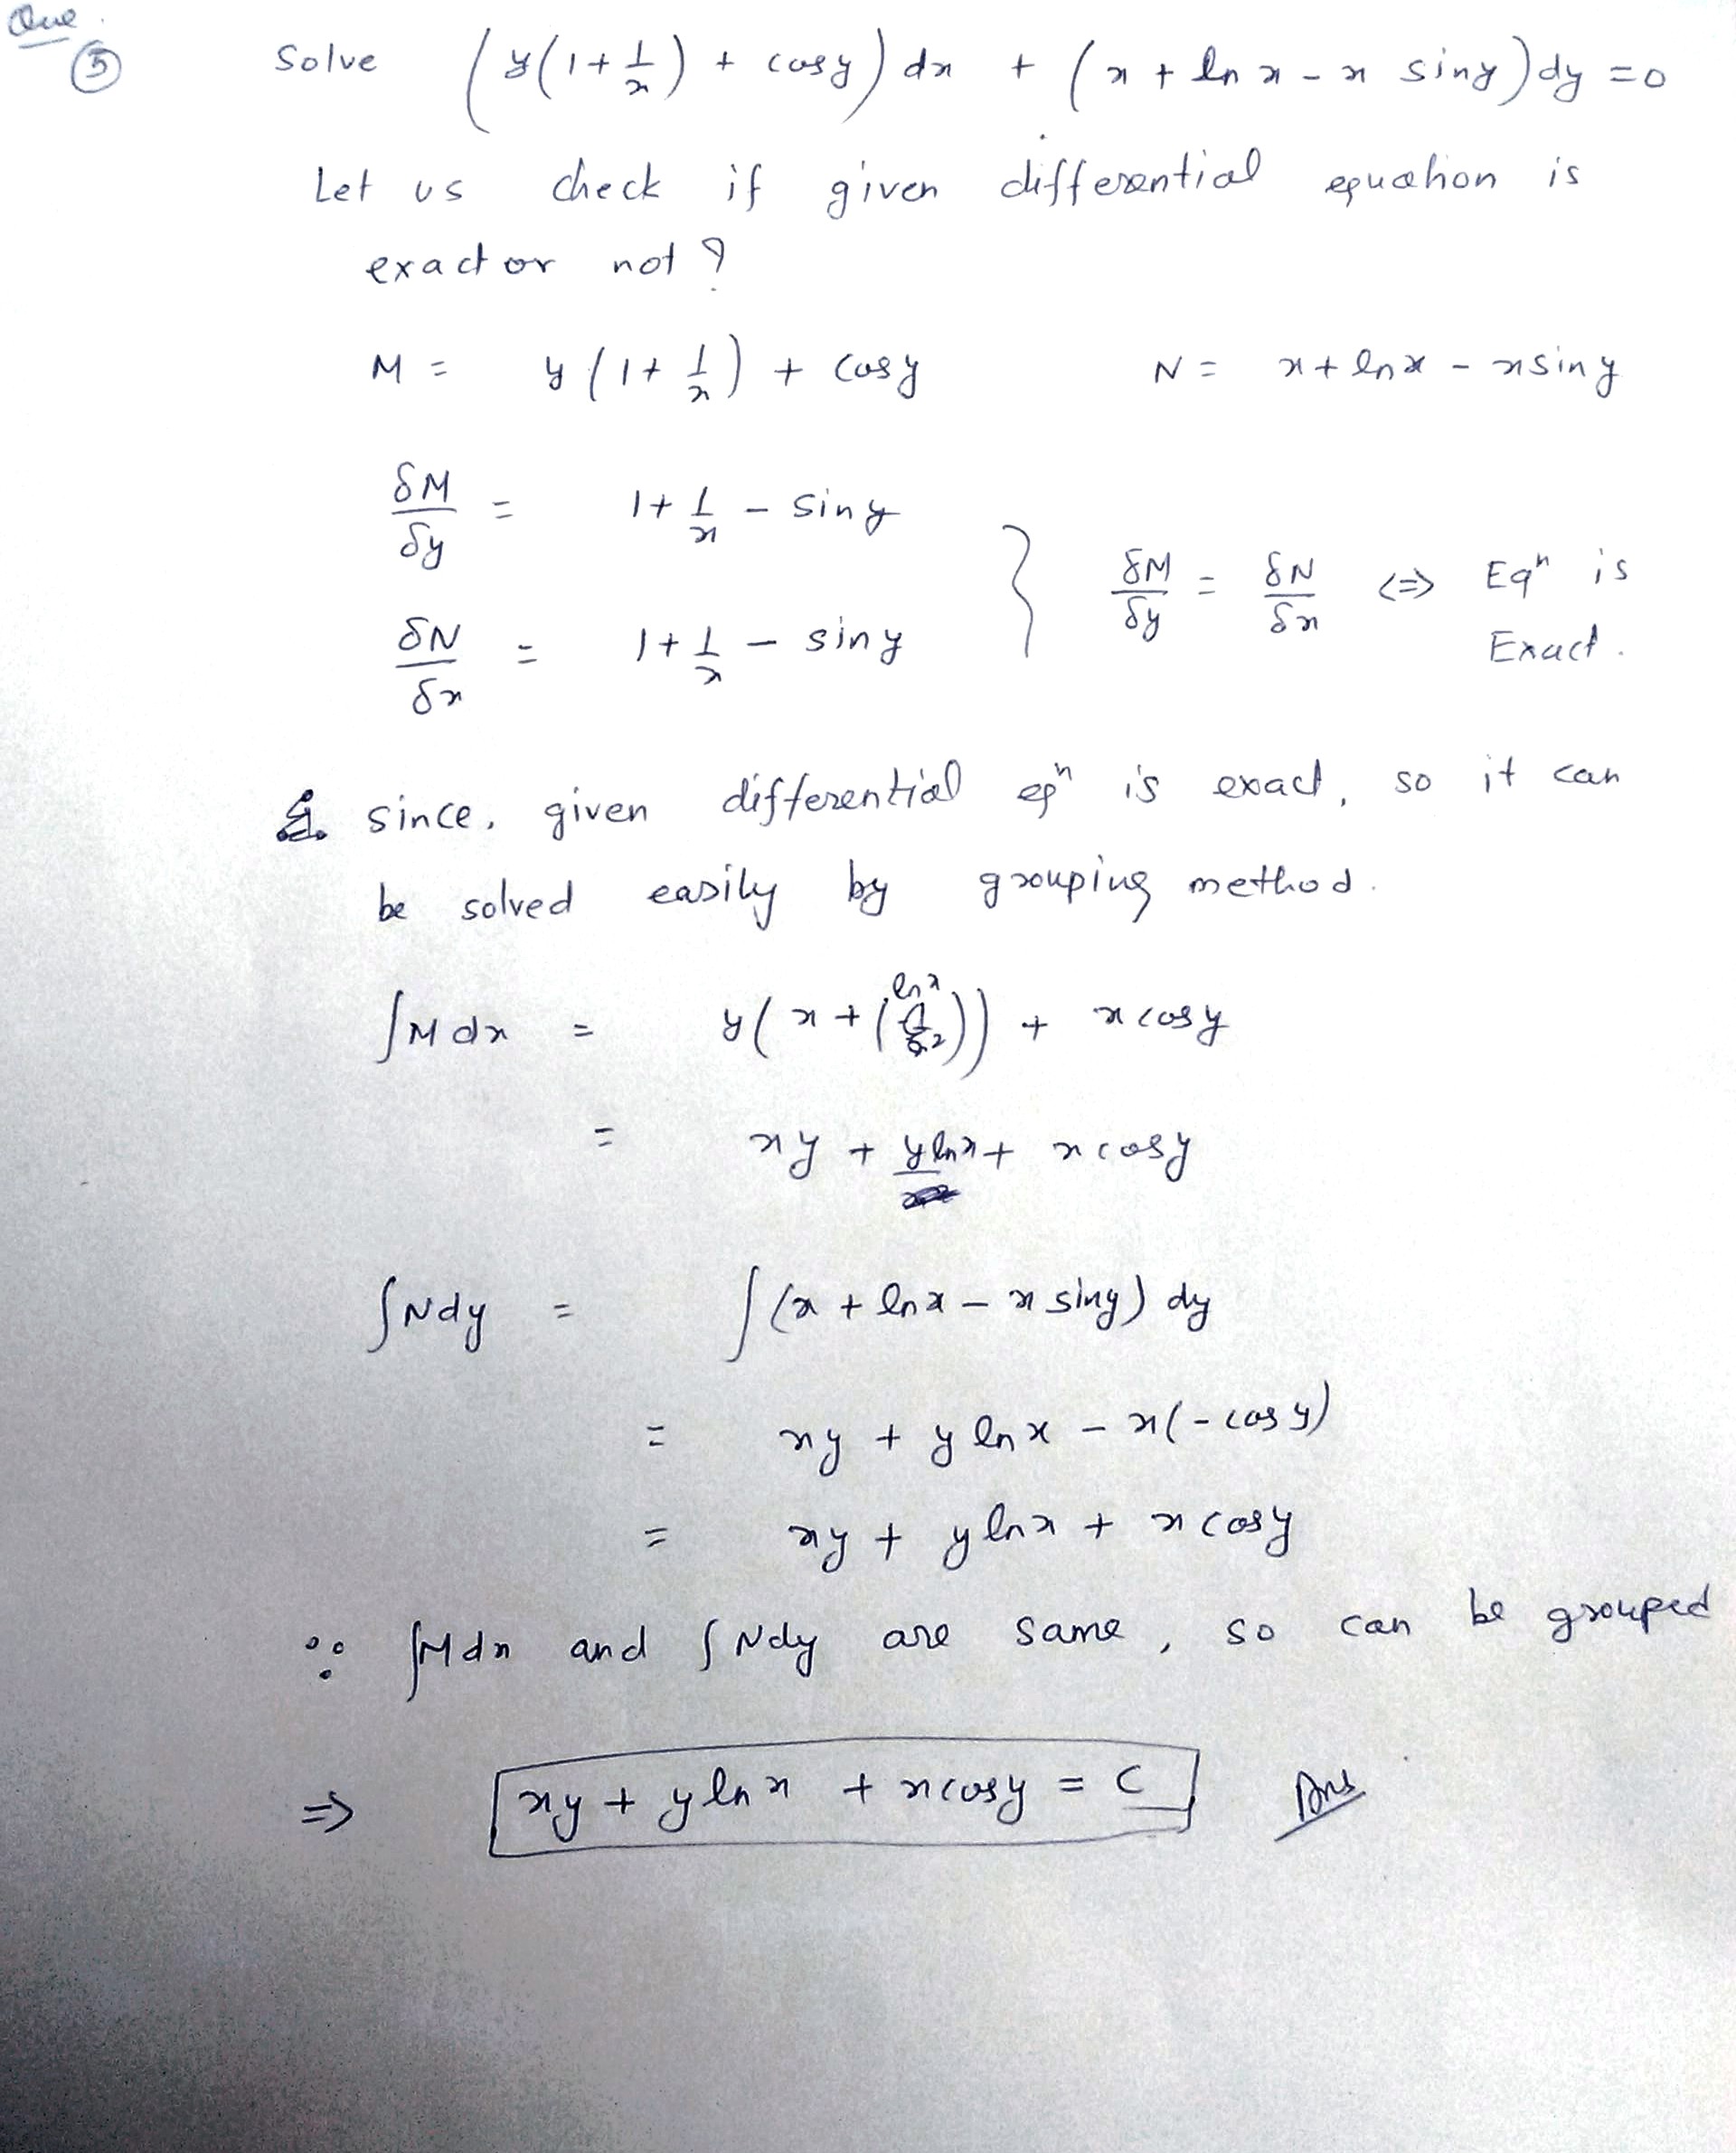 Que
(5) Solve (y(1+1/x) + cosy) dx + (x + ln x - x siny) dy = 0
Let us check if given differential equation is
exact or not ?
M = y (1 + 1/x) + cosy N = x + lnx - xsiny
δM/δy = 1 + 1/x - siny
δN/δx = 1 + 1/x - siny } δM/δy = δN/δx <=> Eqⁿ is Exact.
since, given differential eqⁿ is exact, so it can
be solved easily by grouping method.
∫M dx = y(x + (ln x)) + x cosy
= xy + y lnx + x cosy
∫Ndy = ∫(x + lnx - x siny) dy
= xy + y lnx - x(-cos y)
= xy + y lnx + x cosy
∵ ∫Mdx and ∫Ndy are same, so can be grouped
=> xy + y ln x + x cosy = C Ans